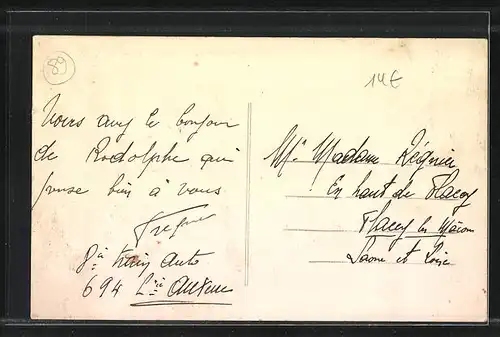 89
14€
Vous avez le bonjour
de Rodolphe qui
pense bien à vous
8è train Auto
694 Cie Auxerre
Mr Madame Régnier
En haut de Flacey
Flacey les Mâcon
Saone et Loire